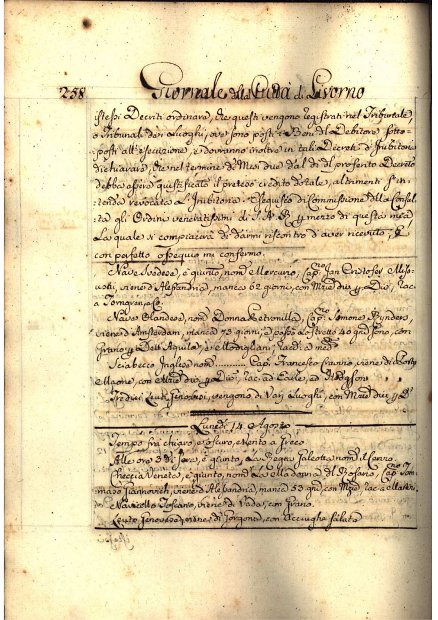 258 Giornale della Città di Livorno
istessi Decreti ordinare, che questi vengono registrati nel Tribunale,
o Tribunali dei Luoghi, ove sono posti i Beni del Debitore sotto-
posti all'esecuzione, e dovranno inoltre in tali Decreti d'Inibitoria
dichiarare, che nel termine di Mesi due dal dì del presente Decreto
debba essere giustificato il preteso credito dotale, altrimenti s'in-
tenda revocata l'Inibitoria. Eseguisco di commissione della Consul-
ta gli Ordini veneratissimi di S. A. R. per mezzo di questa mia,
La quale si compiacerà di darmi riscontro d'aver ricevuta; e
con perfetto ossequio mi confermo.
Nave Svedese, è giunto, nom. Mercurio, Cap. Jan Cristofer
viene d'Alessandria, manca 62 giorni, con Mzie due per Dio, rac.
a
Nave Olandese, nom. Donna Petronilla, Cap. Simone Rynders,
viene d'Amsterdam, manca 73 giorni, e passò lo stretto 40 giorni sono, con
Grano per Dell'Aquila, e Modigliani, rac. a med.
Sciabecco Inglese nom. ......... Cap. Francesco viene di
Maone, con Mzie due per Dio, rac. ad ed
Tredici Leuti Genovesi, vengono di Varj Luoghi, con Mzie due per D.
Lunedì 14 Agosto
Tempo fra chiaro, e oscuro, Vento a Greco
Alle ore 3 di sera, è giunto, La Regia Galeotta nom.
Checcia Veneta, è giunto, nom. La Madonna del Rosario, Cap. Tom-
maso Gianovich, viene d'Alessandria, manca 53 gni, con Mzie, rac. a
Navicello Toscano, viene di Vada, con Grano.
Leuto Genovese, viene di Gorgona, con Acciughe salate